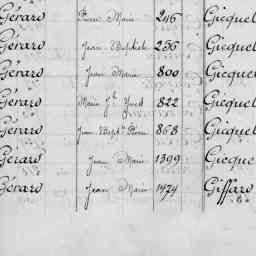 Gérard Pierre Marie 246 Gicquel
Gérard Jean Baptiste 256 Gicquel
Gérard Jean Marie 800 Gicquel
Gérard Marie Jh Yves 822 Gicquel
Gérard Jean Bapte Pierre 868 Gicquel
Gérard Jean Marie 1399 Gicque
Gérard Jean Marie 1474 Giffard